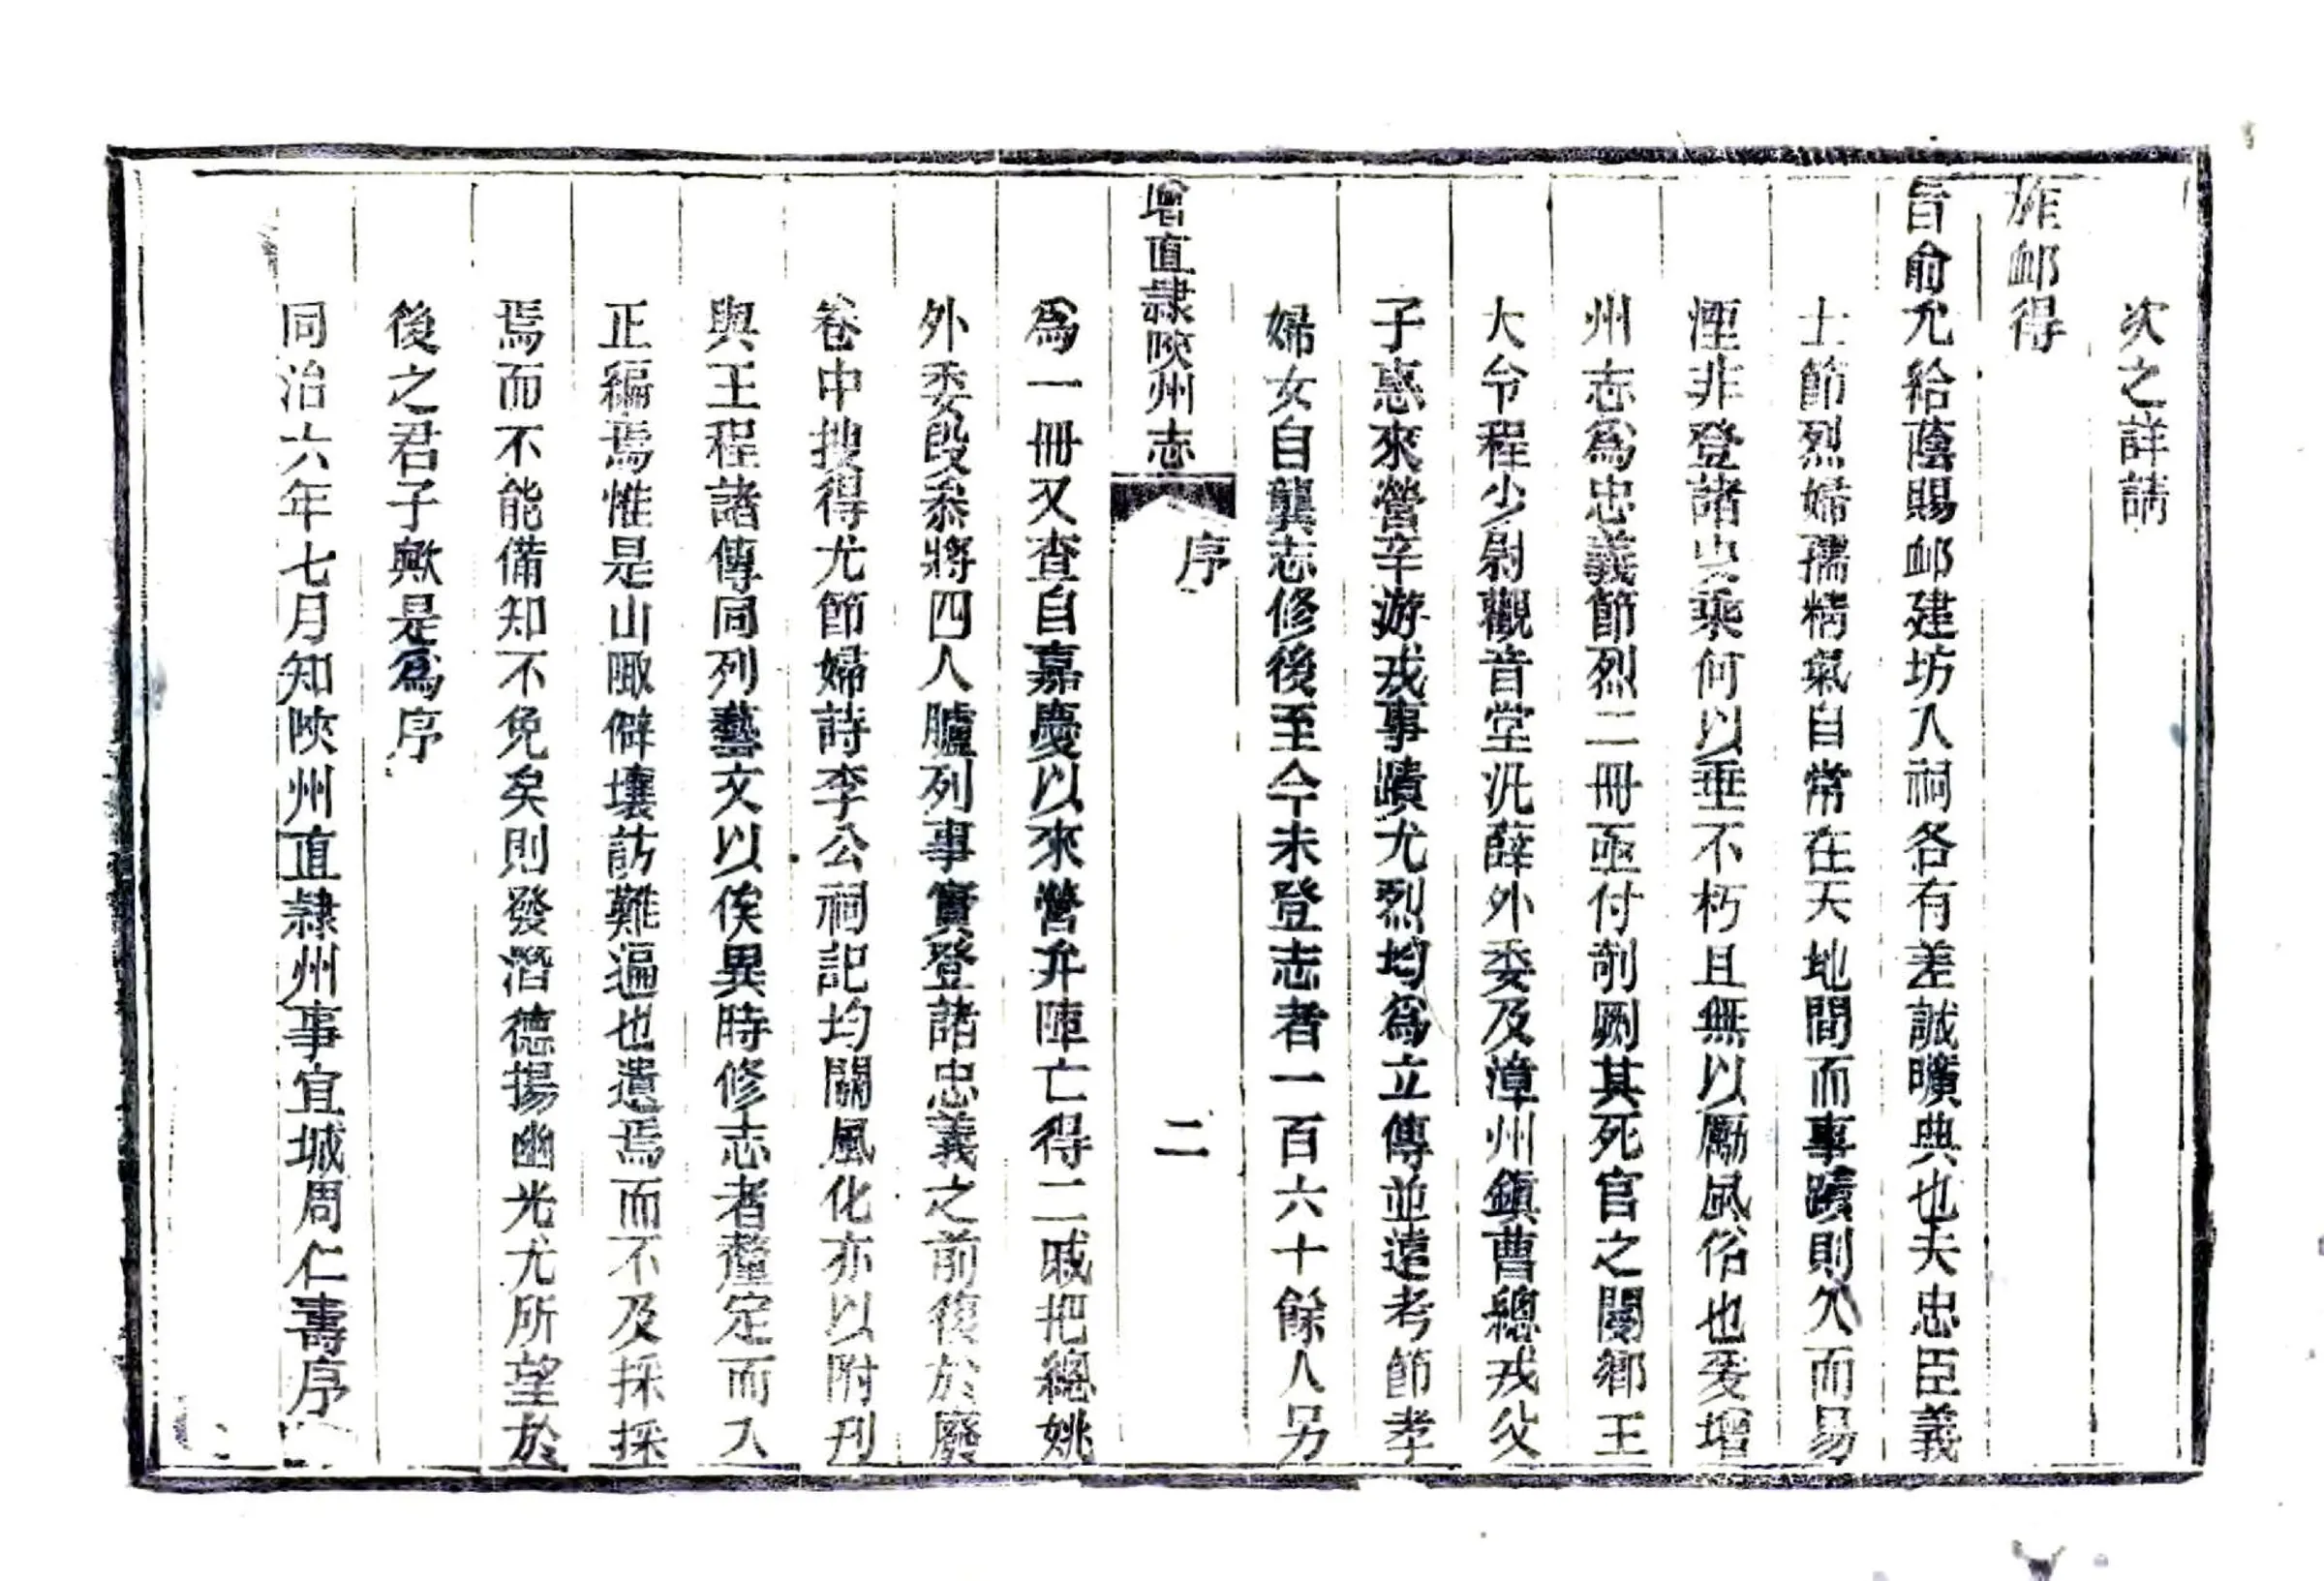 次之詳請
旌卹得
旨俞允給蔭賜卹建坊入祠各有差誠曠典也夫忠臣義
士節烈婦孺精氣自常在天地間而事蹟則久而易
湮非登諸史乘何以垂不朽且無以勵風俗也爰增
州志爲忠義節烈二冊亟付剞劂其死官之閿鄉王
大令程少尉觀音堂汛薛外委及漳州鎮曹總戎父
子惠來營辛游戎事蹟尤烈均爲立傳並遠考節孝
婦女自龔志修後至今未登志者一百六十餘人另
增直隸陝州志
序
二
爲一冊又查自嘉慶以來營弁陣亡得二戚把總姚
外委段叅將四人臚列事實登諸忠義之前復於廢
卷中搜得尤節婦詩李公祠記均關風化亦以附刊
與王程諸傳同列藝文以俟異時修志者釐定而入
正編焉惟是山陬僻壤訪難遍也遺焉而不及採採
焉而不能備知不免矣則發潛德揚幽光尤所望於
後之君子歟是爲序
同治六年七月知陝州直隸州事宜城周仁壽序